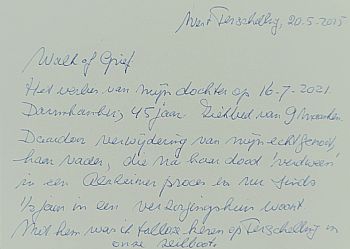 West Terschelling, 20.5.2025
Walk of Grief
Het verlies van mijn dochter op 16-7-2021.
Darmkanker, 45 jaar. Ziekbed van 9 maanden.
Daardoor verwijdering van mijn echtgenoot,
haar vader, die na haar dood 'verdween'
in een Alzheimer proces en nu sinds
1/2 jaar in een verzorgingshuis woont.
Met hem was ik talloze keren op Terschelling in
onze zeilboot.